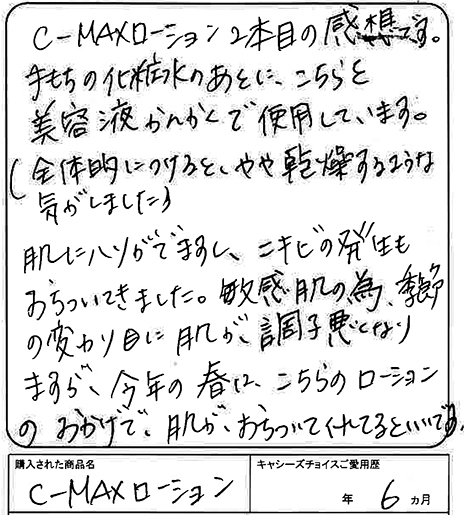 C-MAXローション2本目の感想です。
手もちの化粧水のあとに、こちらを
美容液かんかくで使用しています。
(全体的につけると、やや乾燥するような
気がしました)
肌にハリがでますし、ニキビの発生も
おちついてきました。敏感肌の為、季節
の変わり目に肌が、調子悪くなり
ますが、今年の春は、こちらのローション
のおかげで、肌が、おちついて
購入された商品名
キャシーズチョイスご愛用歴
C-MAXローション
年 6 ヵ月